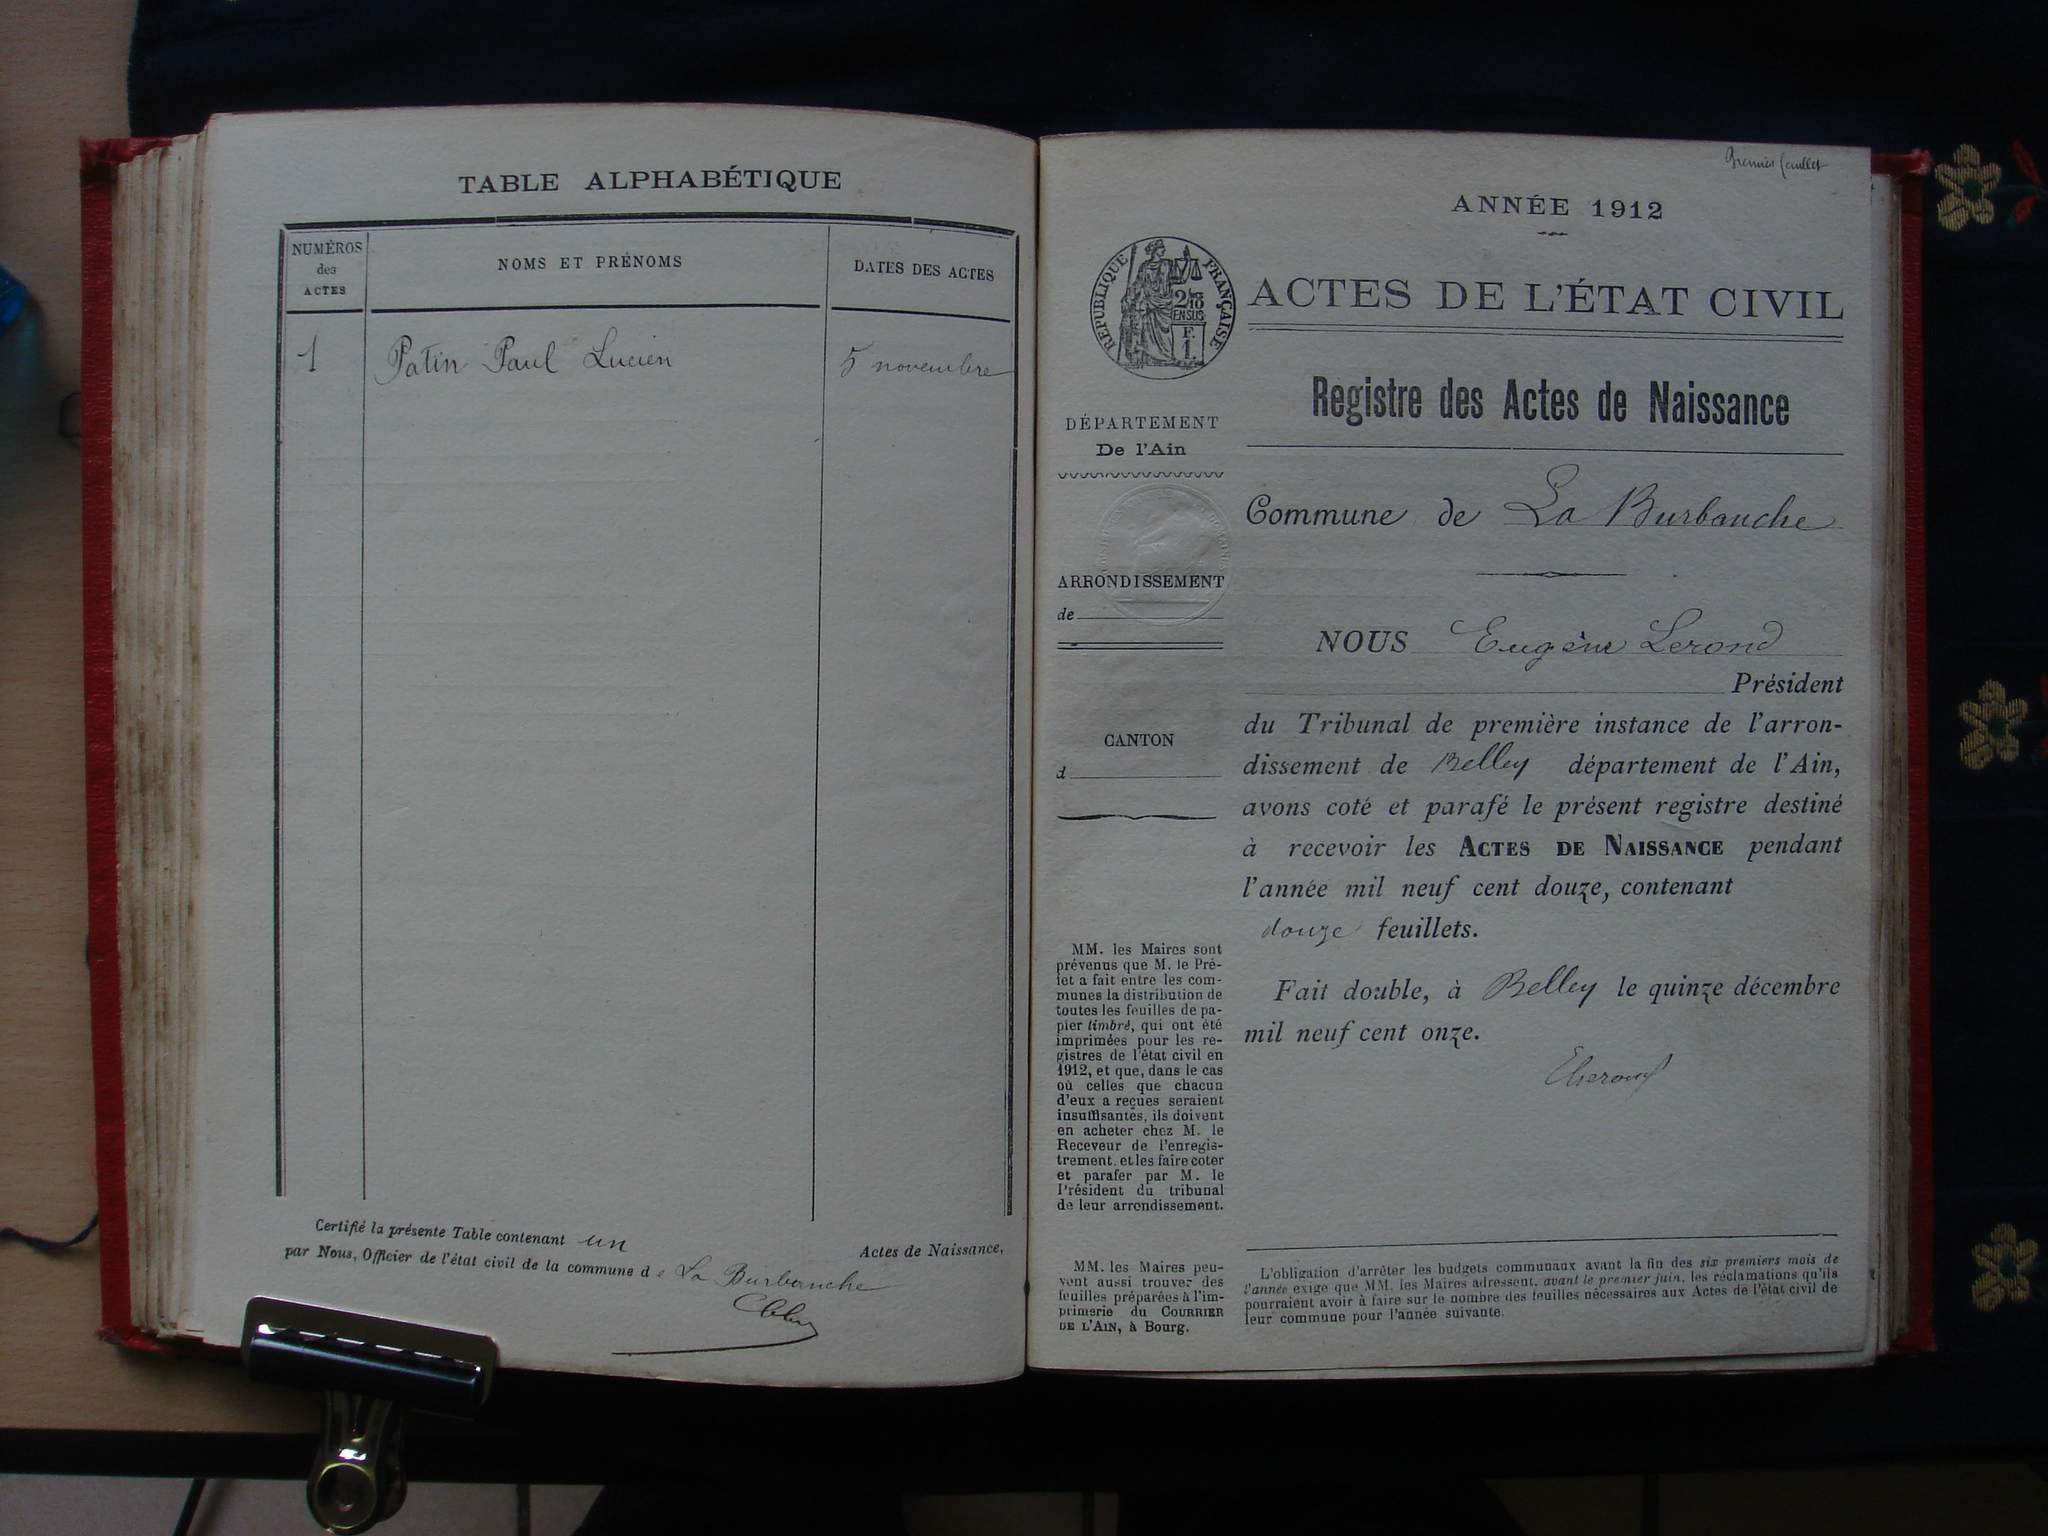 TABLE ALPHABÉTIQUE
NUMÉROS
des
ACTES
NOMS ET PRÉNOMS
DATES DES ACTES
1 Patin Paul Lucien 5 novembre
Certifié la présente Table contenant un Actes de Naissance,
par Nous, Officier de l'état civil de la commune de La Burbanche
Premier feuillet
ANNÉE 1912
RÉPUBLIQUE FRANÇAISE
ACTES DE L'ÉTAT CIVIL
Registre des Actes de Naissance
DÉPARTEMENT
De l'Ain
ARRONDISSEMENT
de
CANTON
d
MM. les Maires sont
prévenus que M. le Pré-
fet a fait entre les com-
munes la distribution de
toutes les feuilles de pa-
pier timbré, qui ont été
imprimées pour les re-
gistres de l'état civil en
1912, et que, dans le cas
où celles que chacun
d'eux a reçues seraient
insuffisantes, ils doivent
en acheter chez M. le
Receveur de l'enregis-
trement, et les faire coter
et parafer par M. le
Président du tribunal
de leur arrondissement.
MM. les Maires peu-
vent aussi trouver des
feuilles préparées à l'im-
primerie du COURRIER
DE L'AIN, à Bourg.
Commune de La Burbanche
NOUS Eugène Lerond
Président
du Tribunal de première instance de l'arron-
dissement de Belley département de l'Ain,
avons coté et parafé le présent registre destiné
à recevoir les ACTES DE NAISSANCE pendant
l'année mil neuf cent douze, contenant
douze feuillets.
Fait double, à Belley le quinze décembre
mil neuf cent onze.
L'obligation d'arrêter les budgets communaux avant la fin des six premiers mois de
l'année exige que MM. les Maires adressent, avant le premier juin, les réclamations qu'ils
pourraient avoir à faire sur le nombre des feuilles nécessaires aux Actes de l'état civil de
leur commune pour l'année suivante.